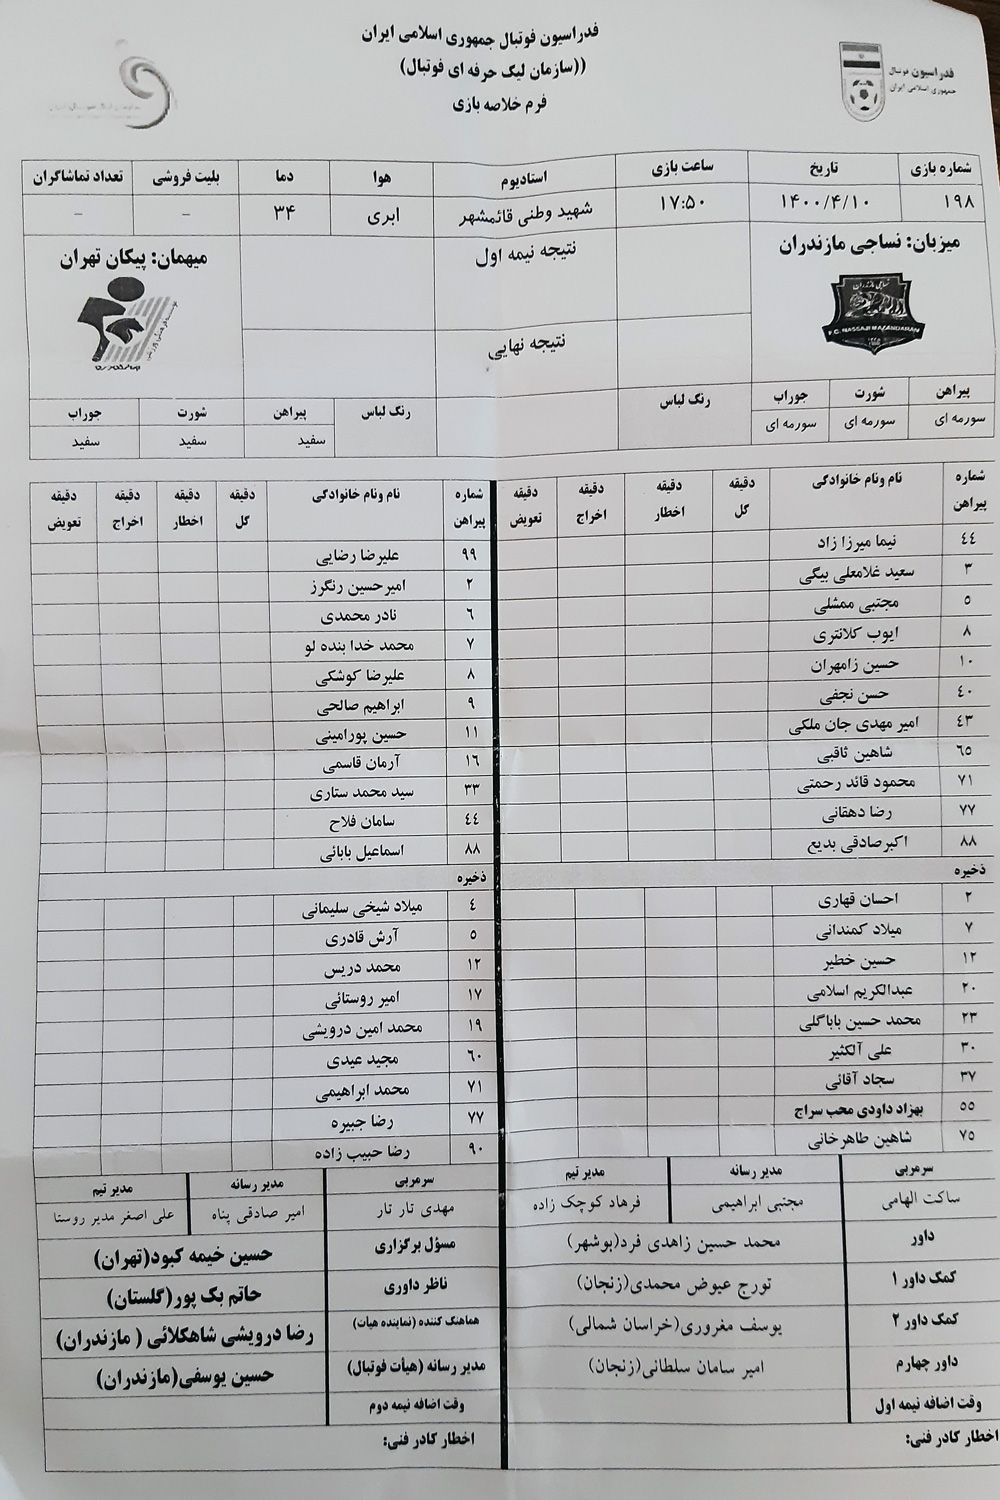 فدراسیون فوتبال جمهوری اسلامی ایران
((سازمان لیگ حرفه ای فوتبال)
فرم خلاصه بازی
فدراسیون فوتبال
جمهوری اسلامی ایران
شماره بازی تاریخ ساعت بازی استادیوم هوا دما بلیت فروشی تعداد تماشاگران
۱۹۸ ۱۴۰۰/۴/۱۰ ۱۷:۵۰ شهید وطنی قائمشهر ابری ۳۴ - -
میزبان: نساجی مازندران نتیجه نیمه اول میهمان: پیکان تهران
نساجی مازندران
F.C. NASSAJI MAZANDARAN
نتیجه نهایی
پیراهن شورت جوراب رنگ لباس رنگ لباس پیراهن شورت جوراب
سورمه ای سورمه ای سورمه ای سفید سفید سفید
شماره پیراهن نام ونام خانوادگی دقیقه گل دقیقه اخطار دقیقه اخراج دقیقه تعویض شماره پیراهن نام ونام خانوادگی دقیقه گل دقیقه اخطار دقیقه اخراج دقیقه تعویض
٤٤ نیما میرزا زاد ۹۹ علیرضا رضایی
۳ سعید غلامعلی بیگی ۲ امیرحسین رنگرز
٥ مجتبی ممشلی ٦ نادر محمدی
۸ ایوب کلانتری ۷ محمد خدا بنده لو
۱۰ حسین زامهران ۸ علیرضا کوشکی
٤۰ حسن نجفی ۹ ابراهیم صالحی
٤۳ امیر مهدی جان ملکی ۱۱ حسین پورامینی
٦٥ شاهین ثاقبی ۱٦ آرمان قاسمی
۷۱ محمود قائد رحمتی ۳۳ سید محمد ستاری
۷۷ رضا دهقانی ٤٤ سامان فلاح
۸۸ اکبرصادقی بدیع ۸۸ اسماعیل بابائی
ذخیره ذخیره
۲ احسان قهاری ٤ میلاد شیخی سلیمانی
۷ میلاد کمندانی ٥ آرش قادری
۱۲ حسین خطیر ۱۲ محمد دریس
۲۰ عبدالکریم اسلامی ۱۷ امیر روستائی
۲۳ محمد حسین باباگلی ۱۹ محمد امین درویشی
۳۰ علی آلکثیر ٦۰ مجید عیدی
۳۷ سجاد آقائی ۷۱ محمد ابراهیمی
٥٥ بهزاد داودی محب سراج ۷۷ رضا جبیره
۷٥ شاهین طاهرخانی ۹۰ رضا حبیب زاده
سرمربی مدیر رسانه مدیر تیم سرمربی مدیر رسانه مدیر تیم
ساکت الهامی مجتبی ابراهیمی فرهاد کوچک زاده مهدی تار تار امیر صادقی پناه علی اصغر مدیر روستا
داور محمد حسین زاهدی فرد(بوشهر) مسؤل برگزاری حسین خیمه کبود(تهران)
کمک داور ۱ تورج عیوض محمدی(زنجان) ناظر داوری حاتم بک پور(گلستان)
کمک داور ۲ یوسف مغروری(خراسان شمالی) هماهنگ کننده (نماینده هیات) رضا درویشی شاهکلائی ( مازندران)
داور چهارم امیر سامان سلطانی(زنجان) مدیر رسانه (هیأت فوتبال) حسین یوسفی(مازندران)
وقت اضافه نیمه اول وقت اضافه نیمه دوم
اخطار کادر فنی: اخطار کادر فنی: